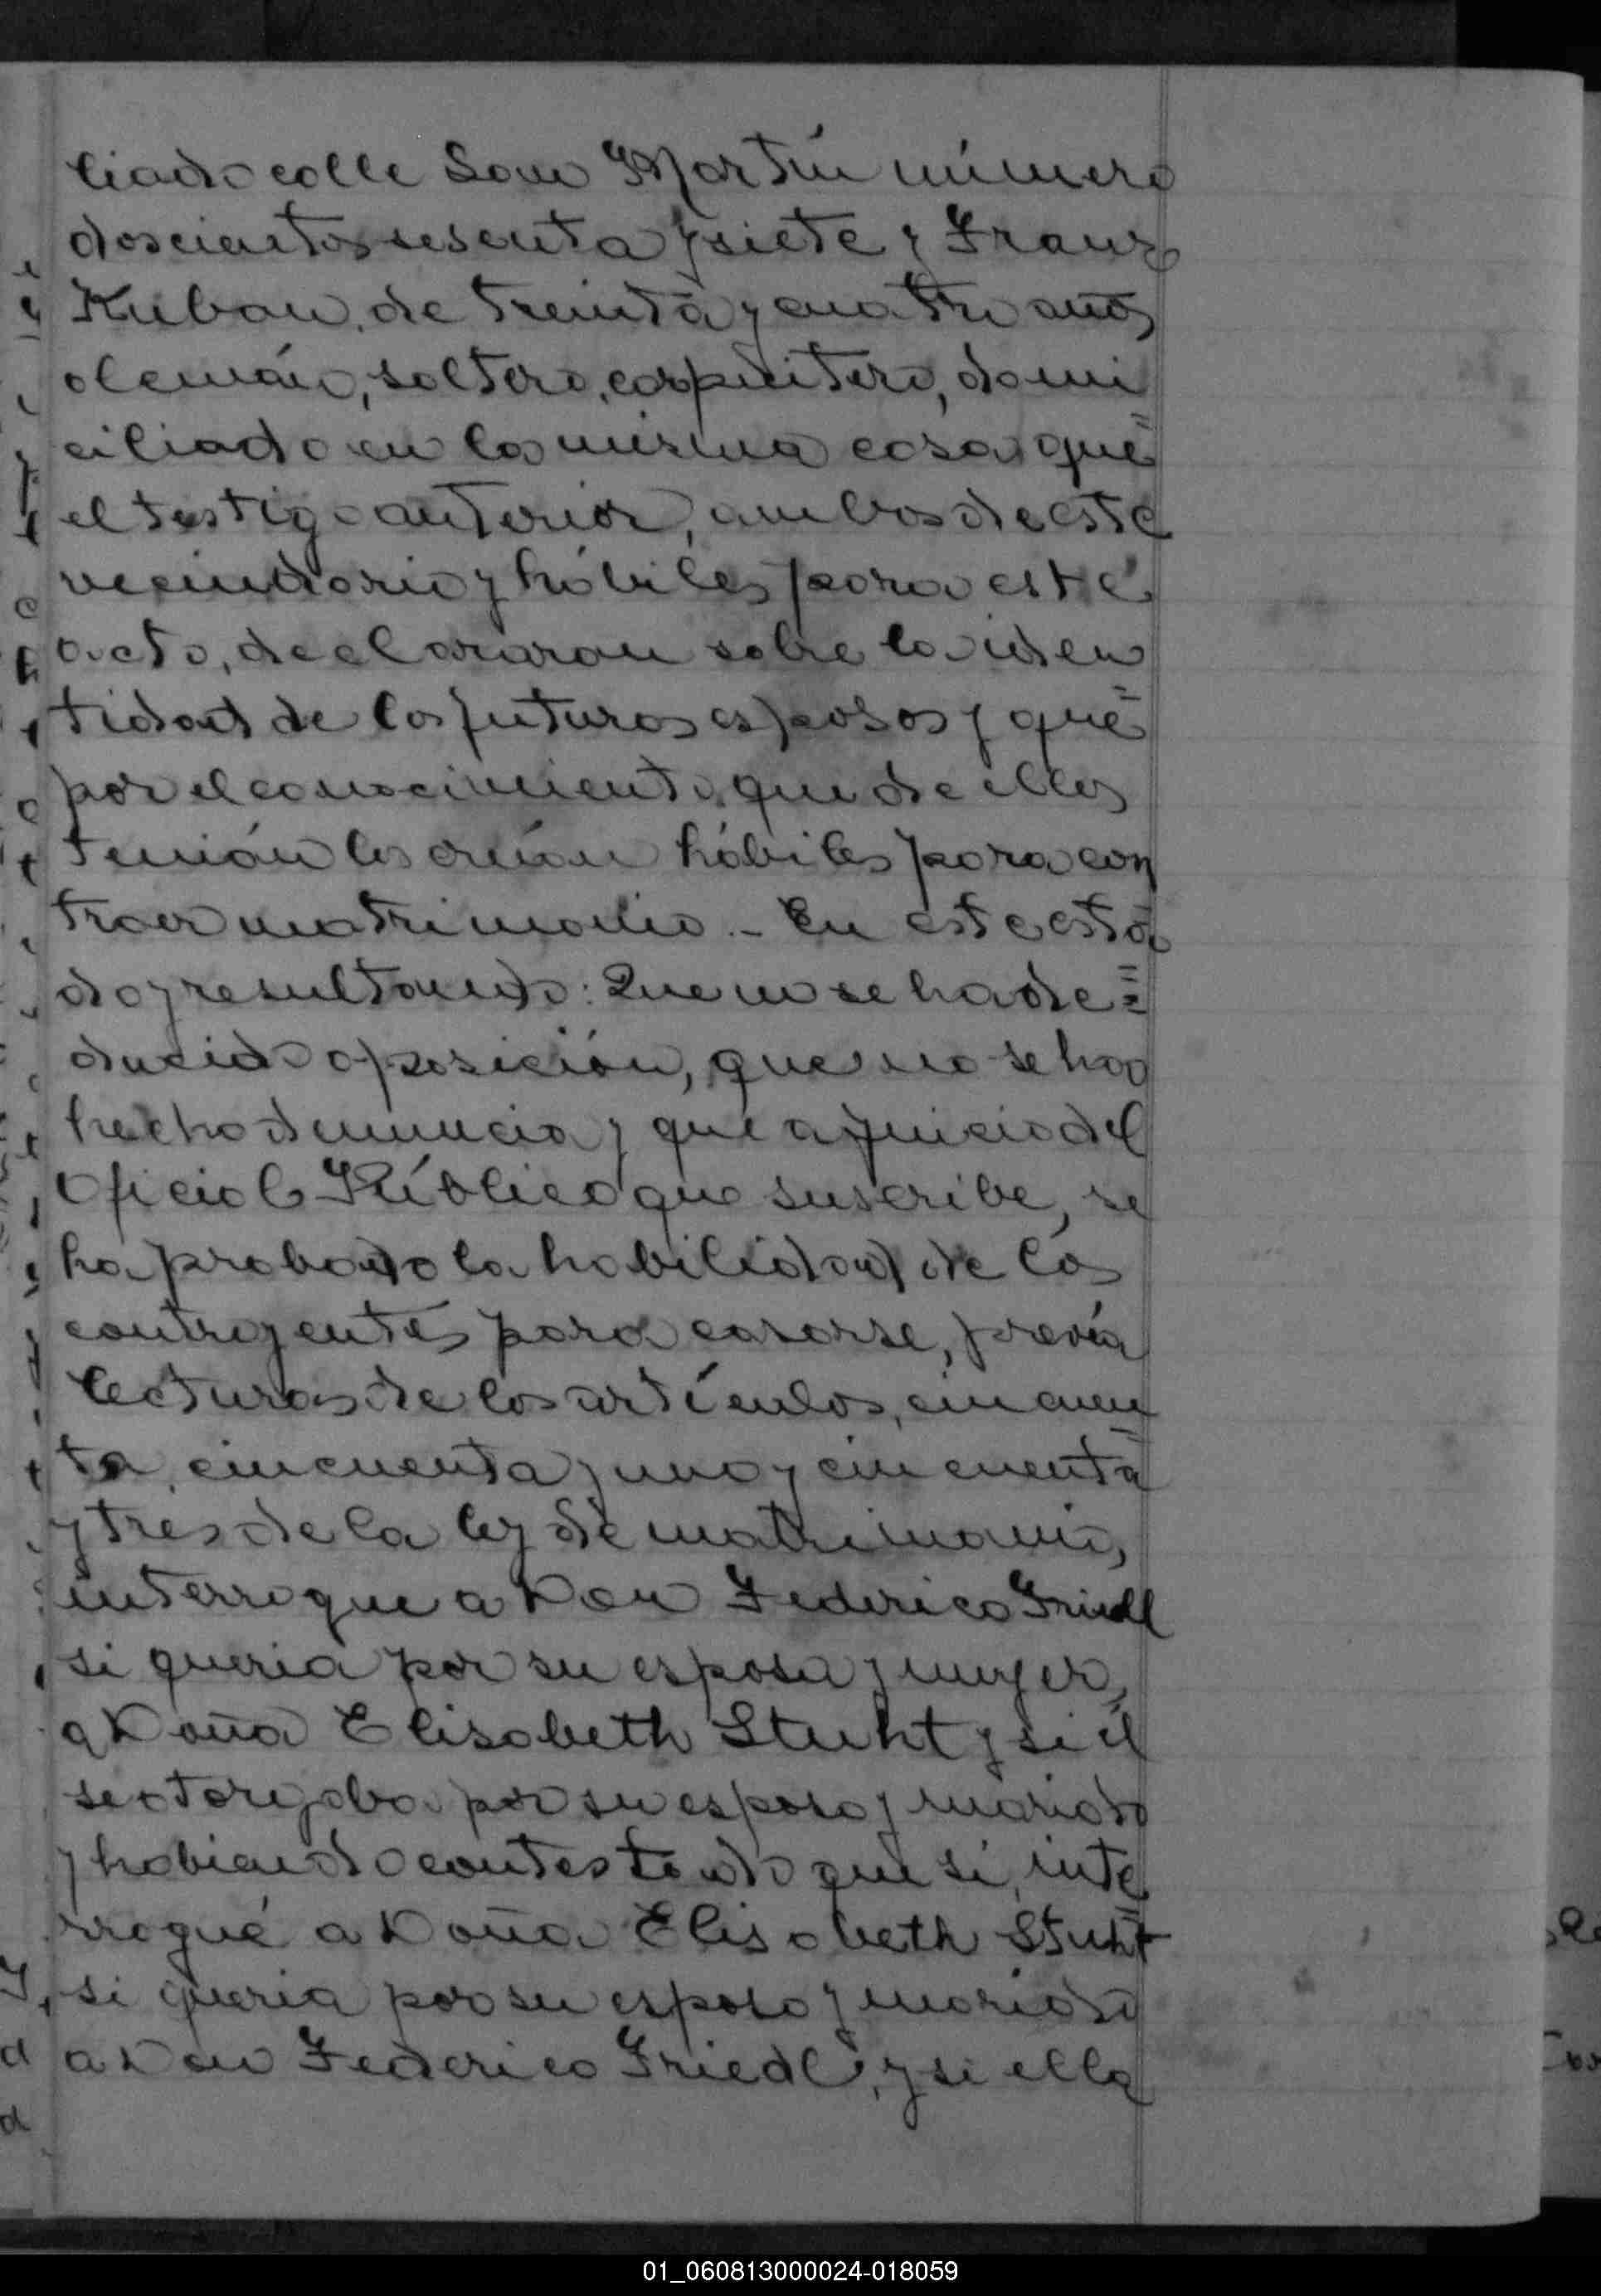 liado calle San Martín número
doscientos sesenta y siete y Franz
Kuban, de treinta y cuatro años
alemán, soltero, carpintero, domi
ciliado en la misma casa que
el testigo anterior, ambos de este
vecindario y hábiles para este
acto, declararon sobre la iden
tidad de los futuros esposos y que
por el conocimiento que de ellos
tenían los creían hábiles para con
traer matrimonio.- En este esta
do y resultando: Que no se ha de=
ducido oposición, que no se ha
hecho denuncia y que a juicio del
Oficial Público que suscribe, se
ha probado la habilidad de los
contrayentes para casarse, previa
lecturas de los artículos, cincuen
ta, cincuenta y uno y cincuenta
y tres de la ley de matrimonio,
interrogue a Don Federico Friedl
si queria por su esposa y mujer,
a Doña Elisabeth Stuht y si él
se otorgaba por su esposo y marido
y habiendo contestado que si, inte
rrogué a Doña Elisabeth Stuht
si queria por su esposo y marido
a Don Federico Friedl, y si ella
01_060813000024-018059